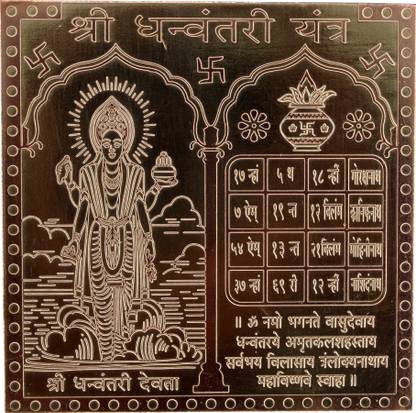 श्री धन्वंतरी यंत्र
१७ न्हां ५ थ १८ न्हीं गोरक्षनाथ
७ ऐम् ११ न्त १२ क्लिंम
५४ ऐम् १३ न्त २१ क्लिंम
३७ न्हां ६९ री १२ न्हीं
॥ ॐ नमो भगनते वासुदेवाय
धन्वंतरये अमृतकलशहस्ताय
सर्वभय विलासाय त्रंलोक्यनाथाय
महाविष्णवे स्वाहा ॥
श्री धन्वंतरी देवता